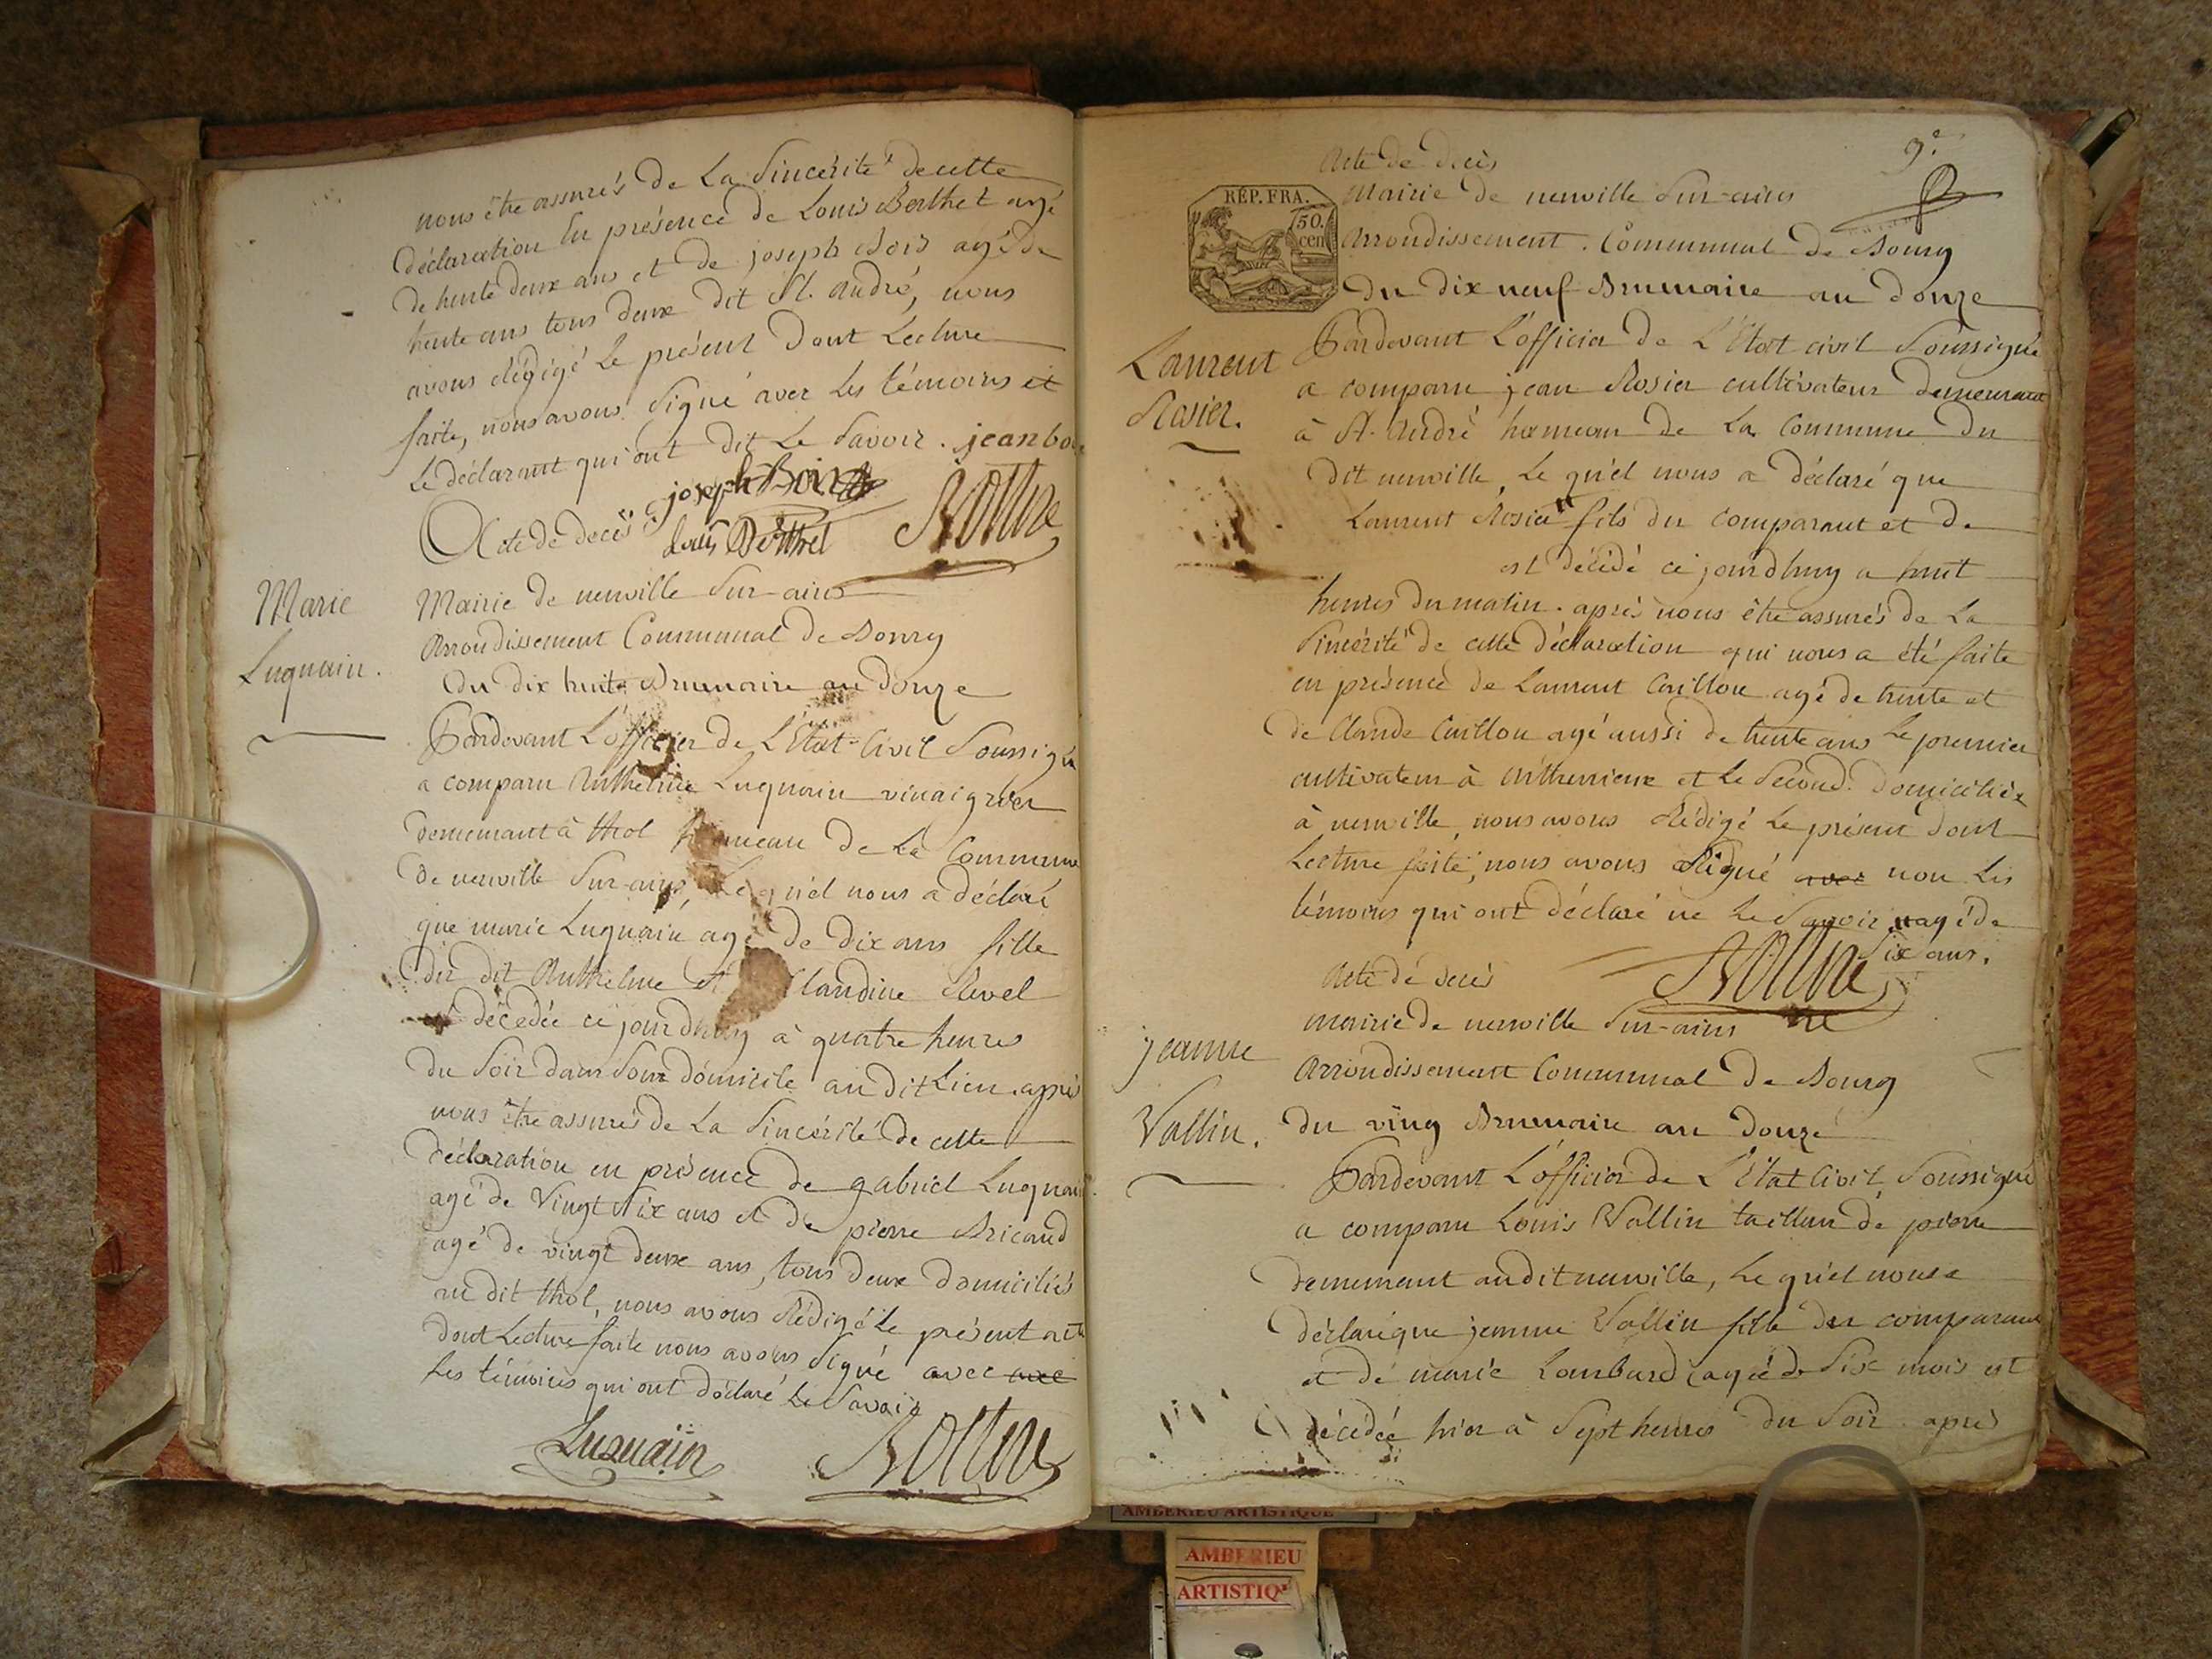 nous être assurés de La Sincérité de cette
déclaration En présence de Louis Berthet agé
de trente deux ans et de joseph Bois agé de
trente ans tous deux dit St. andré, nous
avons rédigé Le présent Dont Lecture
faite, nous avons Signé avec Les témoins et
Le déclarant qui ont dit Le Savoir. jean bo
joseph Bois
Acte de decès
Louis Berthet
Marie
Luquain.
Mairie de neuville Sur-ains
Arrondissement Communal de Bourg
du dix huit Brumaire an Douze
Pardevant L'officier de L'Etat-Civil Soussigné
a comparu Anthelme Luquain vinaigrier
demeurant à thol hameau de La Commune
de neuville Sur-ains, Le quel nous a déclaré
que marie Luquain agé de dix ans fille
du dit Anthelme et Claudine Revel
est décedée ce jourdhuy à quatre heures
du Soir dans Son domicile au dit Lieu. après
nous être assurés de La Sincérité de cette
déclaration en présence de gabriel Luquain
agé de Vingt Six ans et de pierre Bricaud
agé de vingt deux ans, tous deux domiciliés
au dit thol, nous avons Rédigé Le présent acte
dont Lecture faite nous avons Signé avec avec
Les témoins qui ont déclaré Le Savoir
Luquain
9.e
Acte de decès
RÉP. FRA.
50.
cen
Mairie de neuville Sur-ains
Arrondissement. Communal de Bourg
Du dix neuf Brumaire an douze
Laurent
Rosier.
Pardevant L'officier de L'Etat civil Soussigné
a comparu jean Rosier cultivateur demeurant
à St. André hameau de La Commune du
dit neuville, Le quel nous a déclaré que
Laurent Rosier fils du comparant et de
est décédé ce jourdhuy a huit
heures du matin. après nous être assurés de La
Sincérité de cette déclaration qui nous a été faite
en présence de Laurent Caillou agé de trente et
de Claude Caillou agé aussi de trente ans Le premier
cultivateur à et Le Second. domicilié
à neuville, nous avons Rédigé Le présent dont
Lecture faite, nous avons Signé avec non Les
témoins qui ont déclaré ne Le Savoir. agé de
Six ans.
Acte de decès
mairie de neuville Sur-ains
Arrondissement Communal de Bourg
jeanne
Vallin.
du ving Brumaire an Douze
Pardevant L'officier de L'Etat Civil Soussigné
a comparu Louis Vallin tailleur de pierre
demeurant au dit neuville, Le quel nous a
déclaré que jeanne Vallin fille du comparant
et de marie Lombard agée de Six mois est
décédée hier à Sept heures du Soir. après
AMBERIEU ARTISTIQUE
AMBERIEU
ARTISTIQ